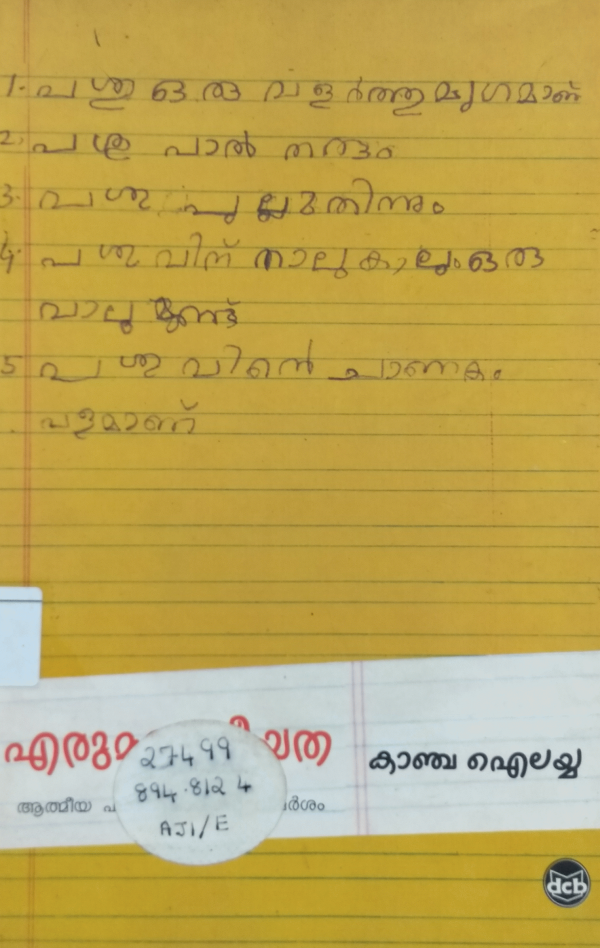 1. പശു ഒരു വളർത്തുമൃഗമാണ്
2. പശു പാൽ തരും
3. പശു പുല്ലു തിന്നും
4. പശുവിന് നാലുകാലും ഒരു
വാലുമുണ്ട്
5 പശുവിൻെ ചാണകം
വളമാണ്
കാഞ്ച ഐലയ്യ
ആത്മീയ
27499
894.812 4
AJI/E
dcb